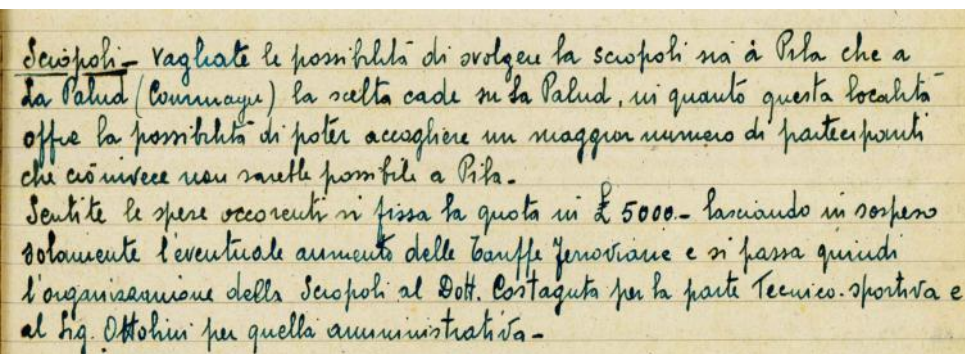 Sciopoli - Vagliate le possibilità di svolgere la sciopoli sia a Pila che a
La Palud (Courmayeur) la scelta cade su La Palud, in quanto questa località
offre la possibilità di poter accogliere un maggior numero di partecipanti
che ciò invece non sarebbe possibile a Pila.
Sentite le spese occorenti si fissa la quota in £ 5000.- lasciando in sospeso
solamente l'eventuale aumento delle Tariffe Ferroviarie e si passa quindi
l'organizzazione della Sciopoli al Dott. Costaguta per la parte Tecnico-sportiva e
al Sig. Ottolini per quella amministrativa-